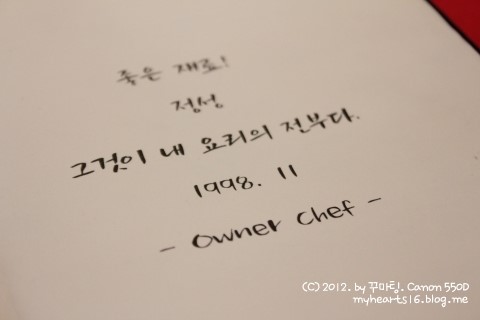 좋은 재료!
정성
그것이 내 요리의 전부다.
1998. 11
- Owner Chef -
(C) 2012. by 꾸마링. Canon 550D
myhearts16.blog.me